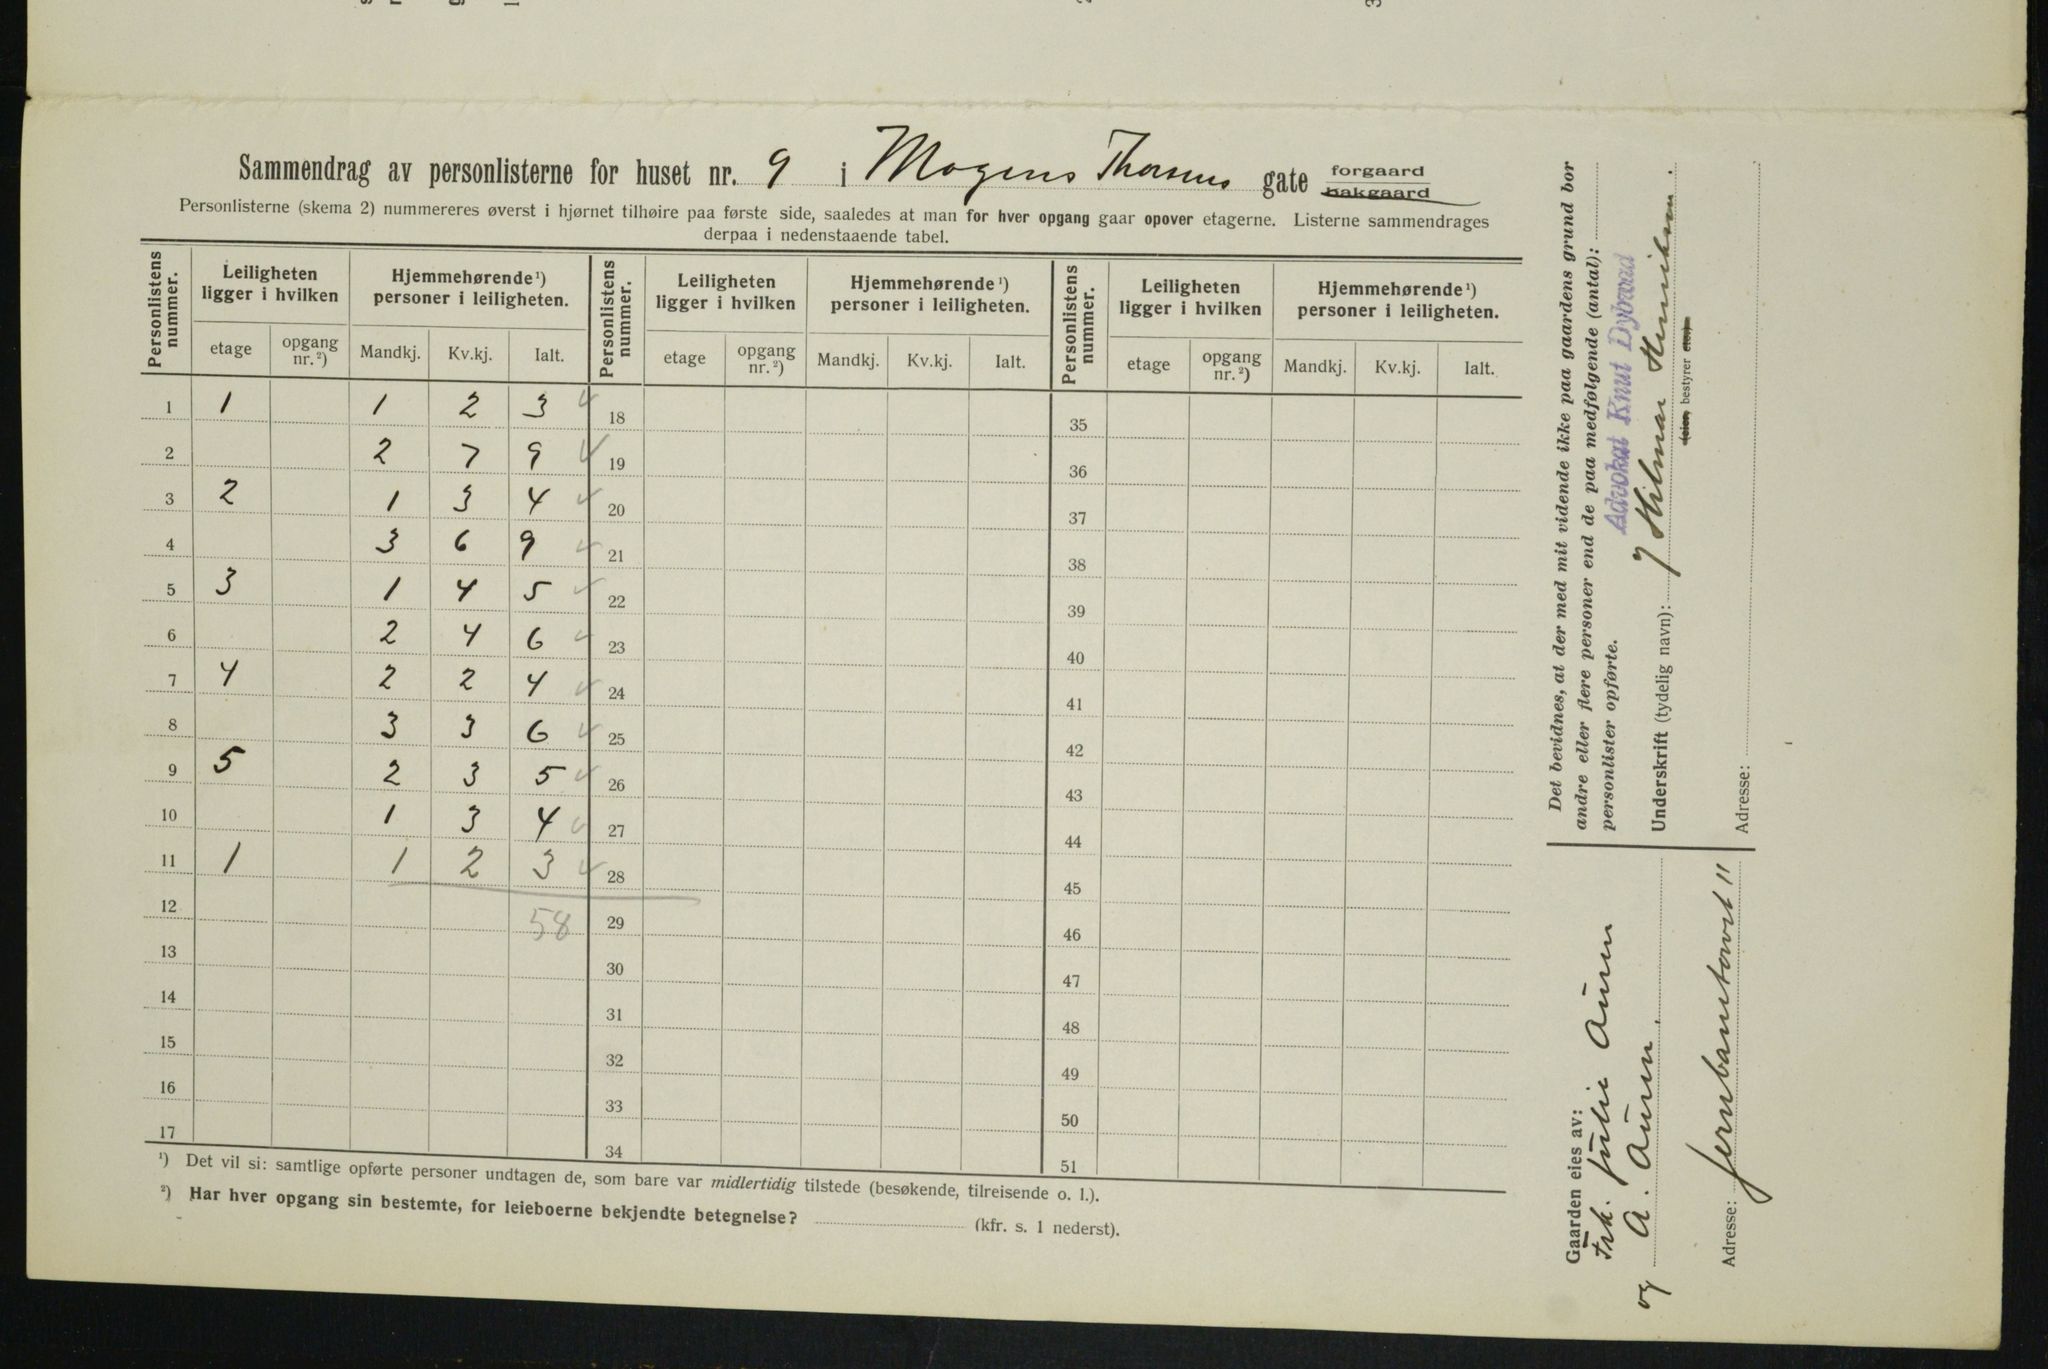 Sammendrag av personlisterne for huset nr. 9 i Mogens Thorsens gate forgaard bakgaard
Personlisterne (skema 2) nummereres øverst i hjørnet tilhøire paa første side, saaledes at man for hver opgang gaar opover etagerne. Listerne sammendrages
derpaa i nedenstaaende tabel.
Personlistens nummer. Leiligheten ligger i hvilken Hjemmehørende¹) personer i leiligheten. Personlistens nummer. Leiligheten ligger i hvilken Hjemmehørende¹) personer i leiligheten. Personlistens nummer. Leiligheten ligger i hvilken Hjemmehørende¹) personer i leiligheten.
etage opgang nr.²) Mandkj. Kv.kj. Ialt. etage opgang nr.²) Mandkj. Kv.kj. Ialt. etage opgang nr.²) Mandkj. Kv.kj. Ialt.
1 1 1 2 3 18 35
2 2 7 9 19 36
3 2 1 3 4 20 37
4 3 6 9 21 38
5 3 1 4 5 22 39
6 2 4 6 23 40
7 4 2 2 4 24 41
8 3 3 6 25 42
9 5 2 3 5 26 43
10 1 3 4 27 44
11 1 1 2 3 28 45
12 58 29 46
13 30 47
14 31 48
15 32 49
16 33 50
17 34 51
¹) Det vil si: samtlige opførte personer undtagen de, som bare var midlertidig tilstede (besøkende, tilreisende o. l.).
²) Har hver opgang sin bestemte, for leieboerne bekjendte betegnelse? (kfr. s. 1 nederst).
Det bevidnes, at der med mit vidende ikke paa gaardens grund bor
andre eller flere personer end de paa medfølgende (antal):
personlister opførte.
Advokat Knut Dybwad
Underskrift (tydelig navn): Hilmar Henriksen.
(eier, bestyrer etc.)
Adresse:
Gaarden eies av:
Frk. Julie Aunn
og A. Aunn.
Adresse: Jernbanetorvet 11